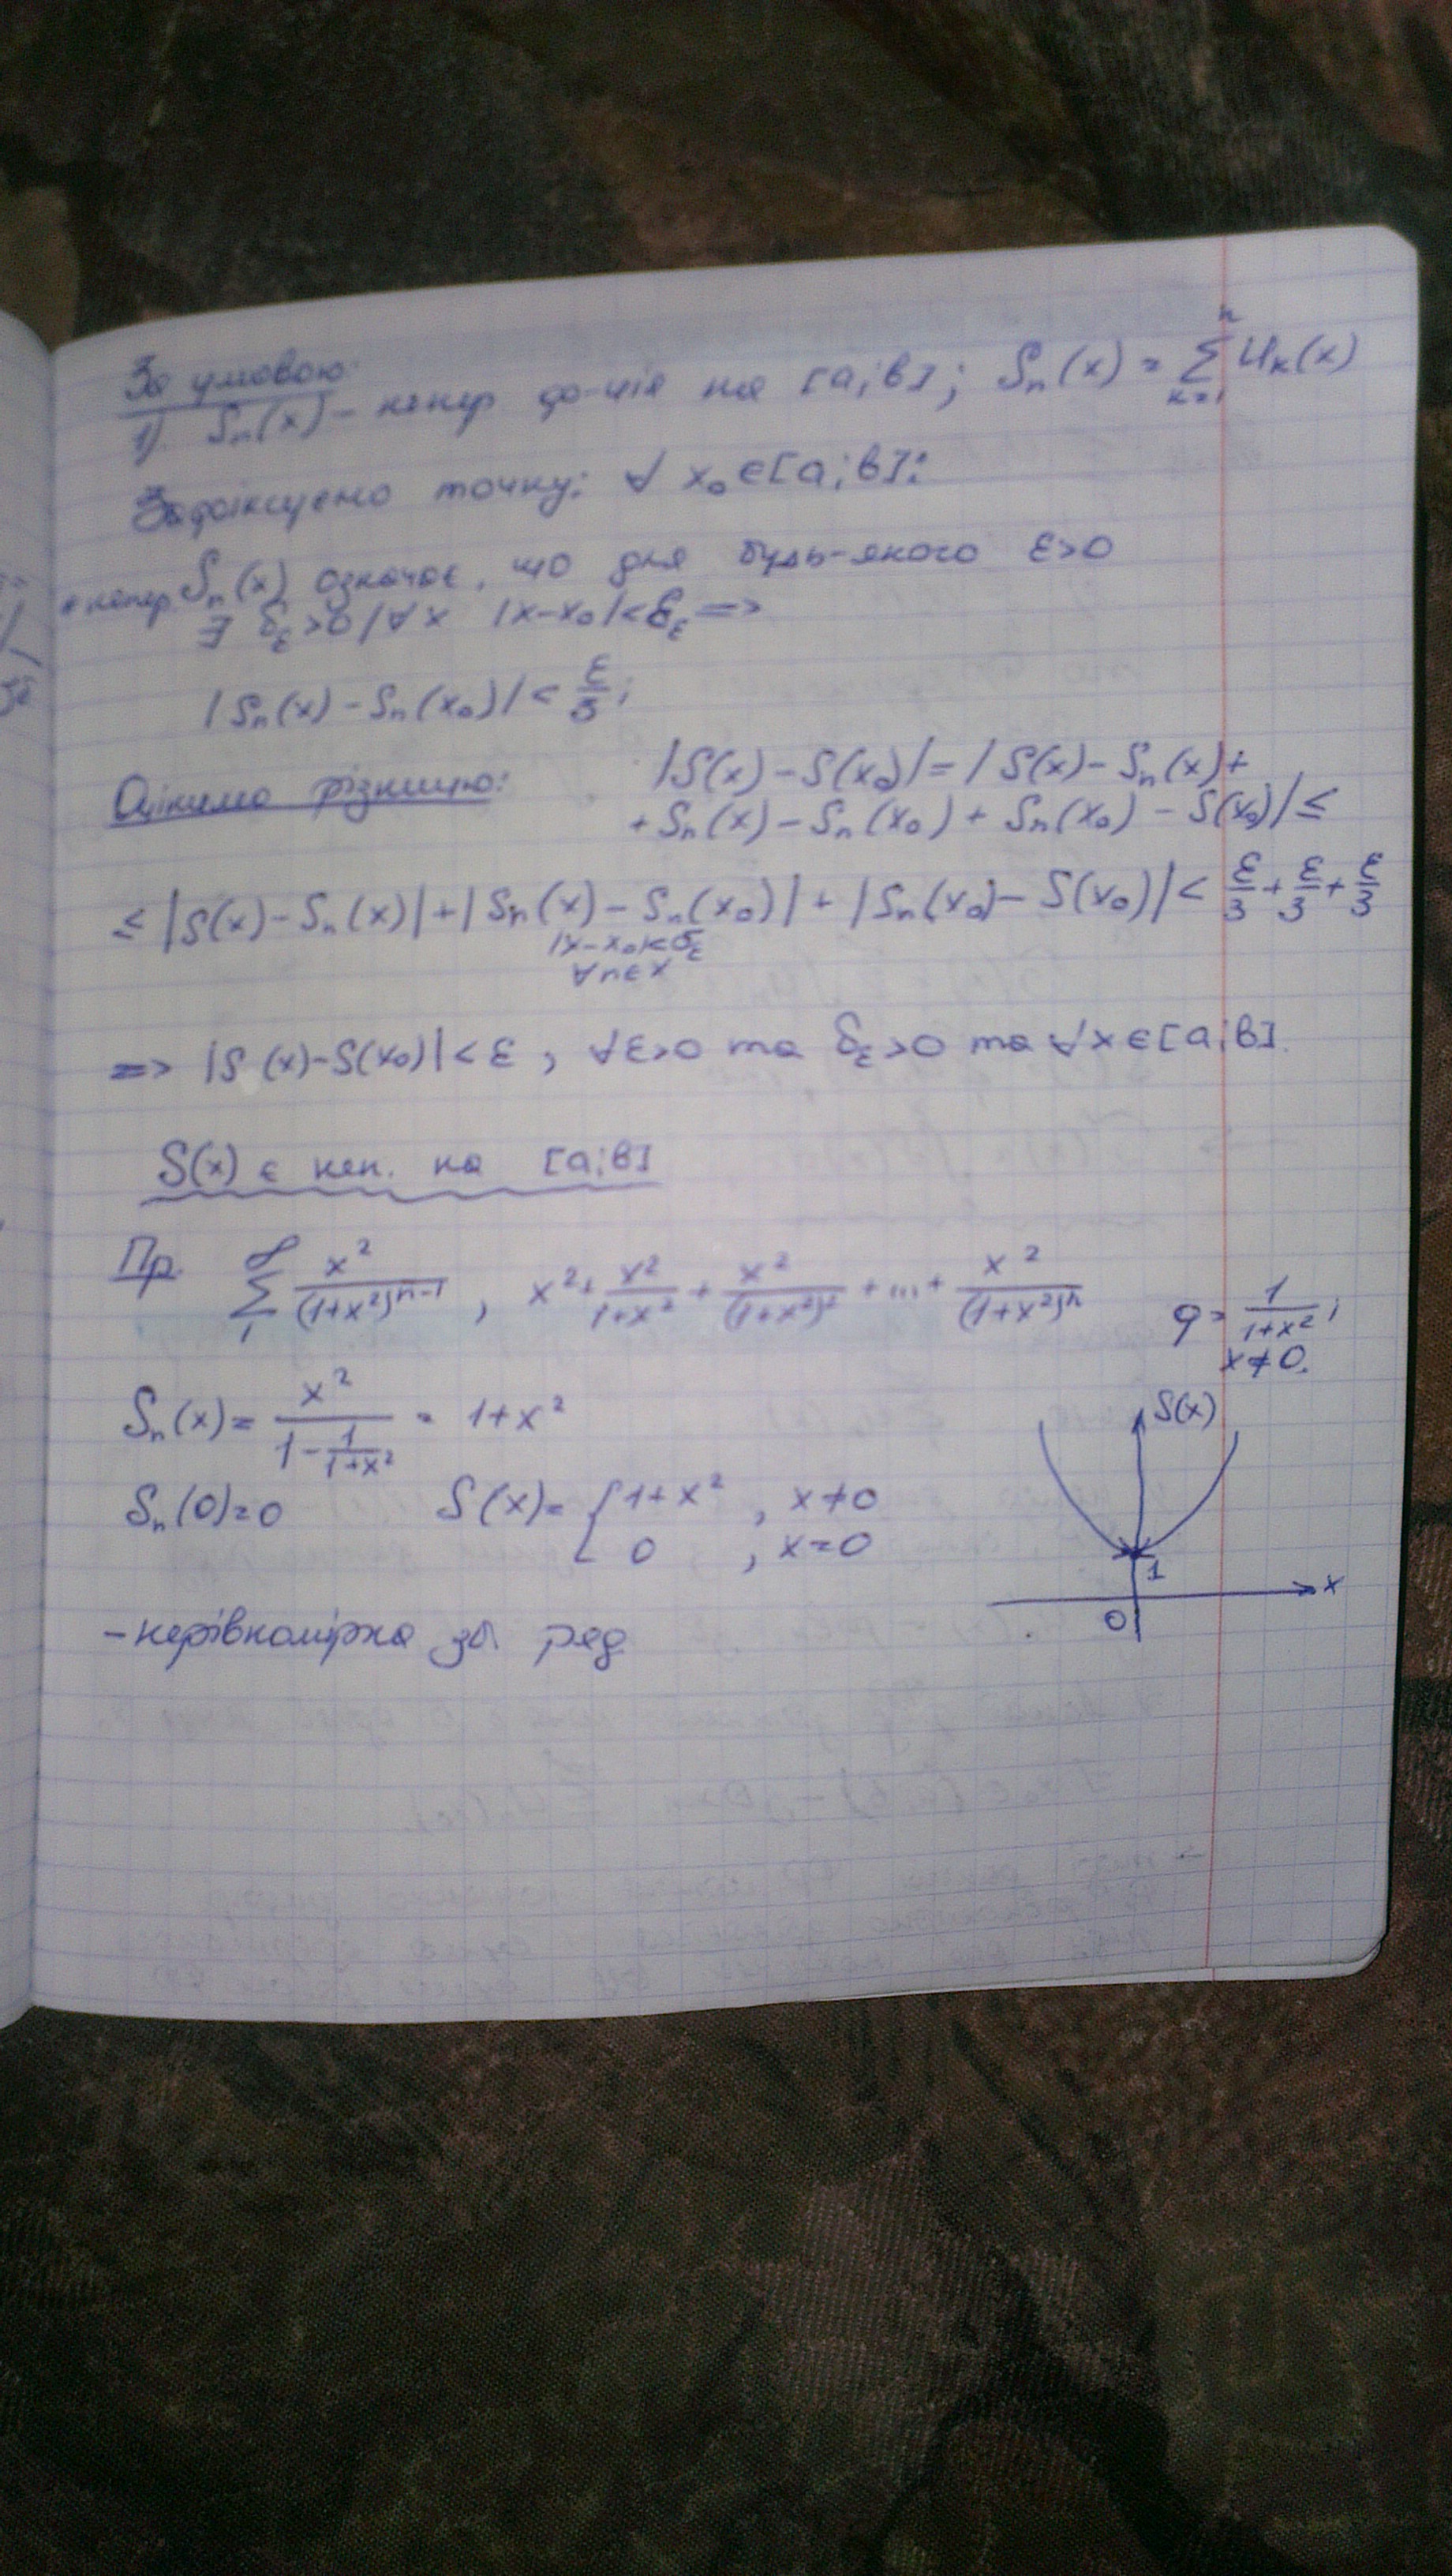 За умовою:
1). Sₙ(x) – непер ф-ція на [a;b]; Sₙ(x) = ∑ₖ₌₁ⁿ Uₖ(x)
Зафіксуємо точку: ∀ x₀ ∈ [a;b]:
непер. Sₙ(x) означає, що для будь-якого ε>0
∃ δ_ε >0 / ∀x |x–x₀|<δ_ε =>
|Sₙ(x) – Sₙ(x₀)| < ε/3;
Оцінимо різницю: |S(x) – S(x₀)| = |S(x) – Sₙ(x) +
+ Sₙ(x) – Sₙ(x₀) + Sₙ(x₀) – S(x₀)| ≤
≤ |S(x) – Sₙ(x)| + |Sₙ(x) – Sₙ(x₀)| + |Sₙ(x₀) – S(x₀)| < ε/3 + ε/3 + ε/3
|x–x₀|<δ_ε
∀n∈x
=> |S(x)–S(x₀)| < ε, ∀ε>0 та δ_ε>0 та ∀x∈[a;b].
S(x) є неп. на [a;b]
Пр. ∑₁^∞ x²/(1+x²)ⁿ⁻¹, x² + x²/(1+x²) + x²/(1+x²)² + ... + x²/(1+x²)ⁿ
q = 1/(1+x²);
x≠0.
Sₙ(x) = x²/(1 – 1/(1+x²)) = 1+x²
Sₙ(0)=0 S(x) = { 1+x², x≠0
0, x=0
S(x)
1
x
0
– нерівномірно зб. ряд